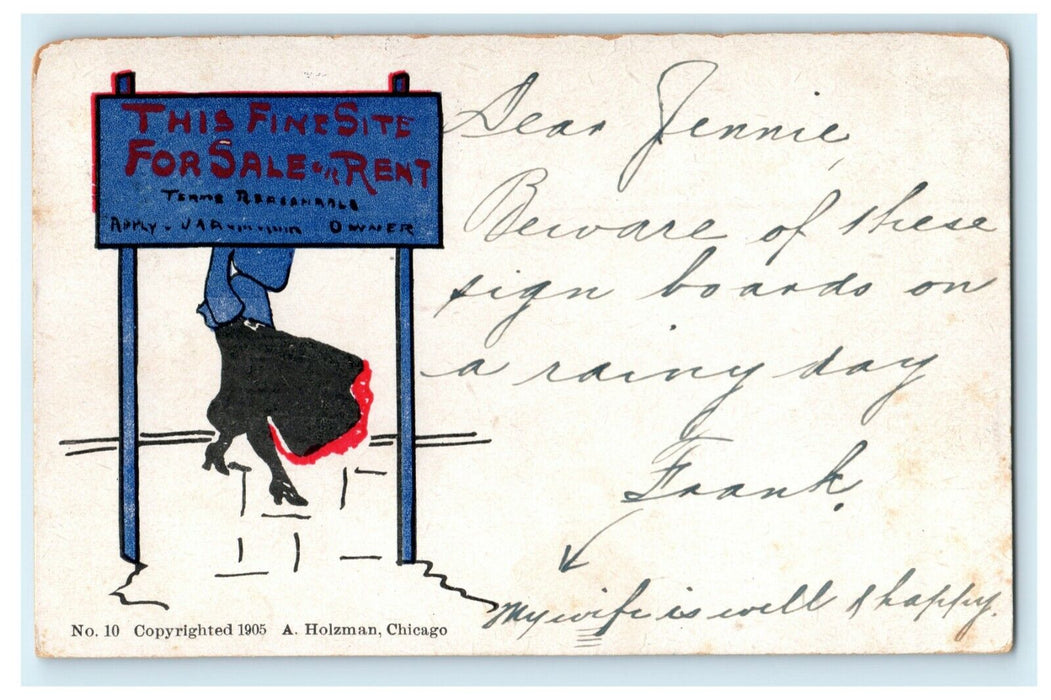 THIS FINE SITE
FOR SALE OR RENT
TERMS REASONABLE
APPLY OWNER
Dear Jennie,
Beware of these
sign boards on
a rainy day
Frank.
My wife is well & happy.
No. 10 Copyrighted 1905 A. Holzman, Chicago